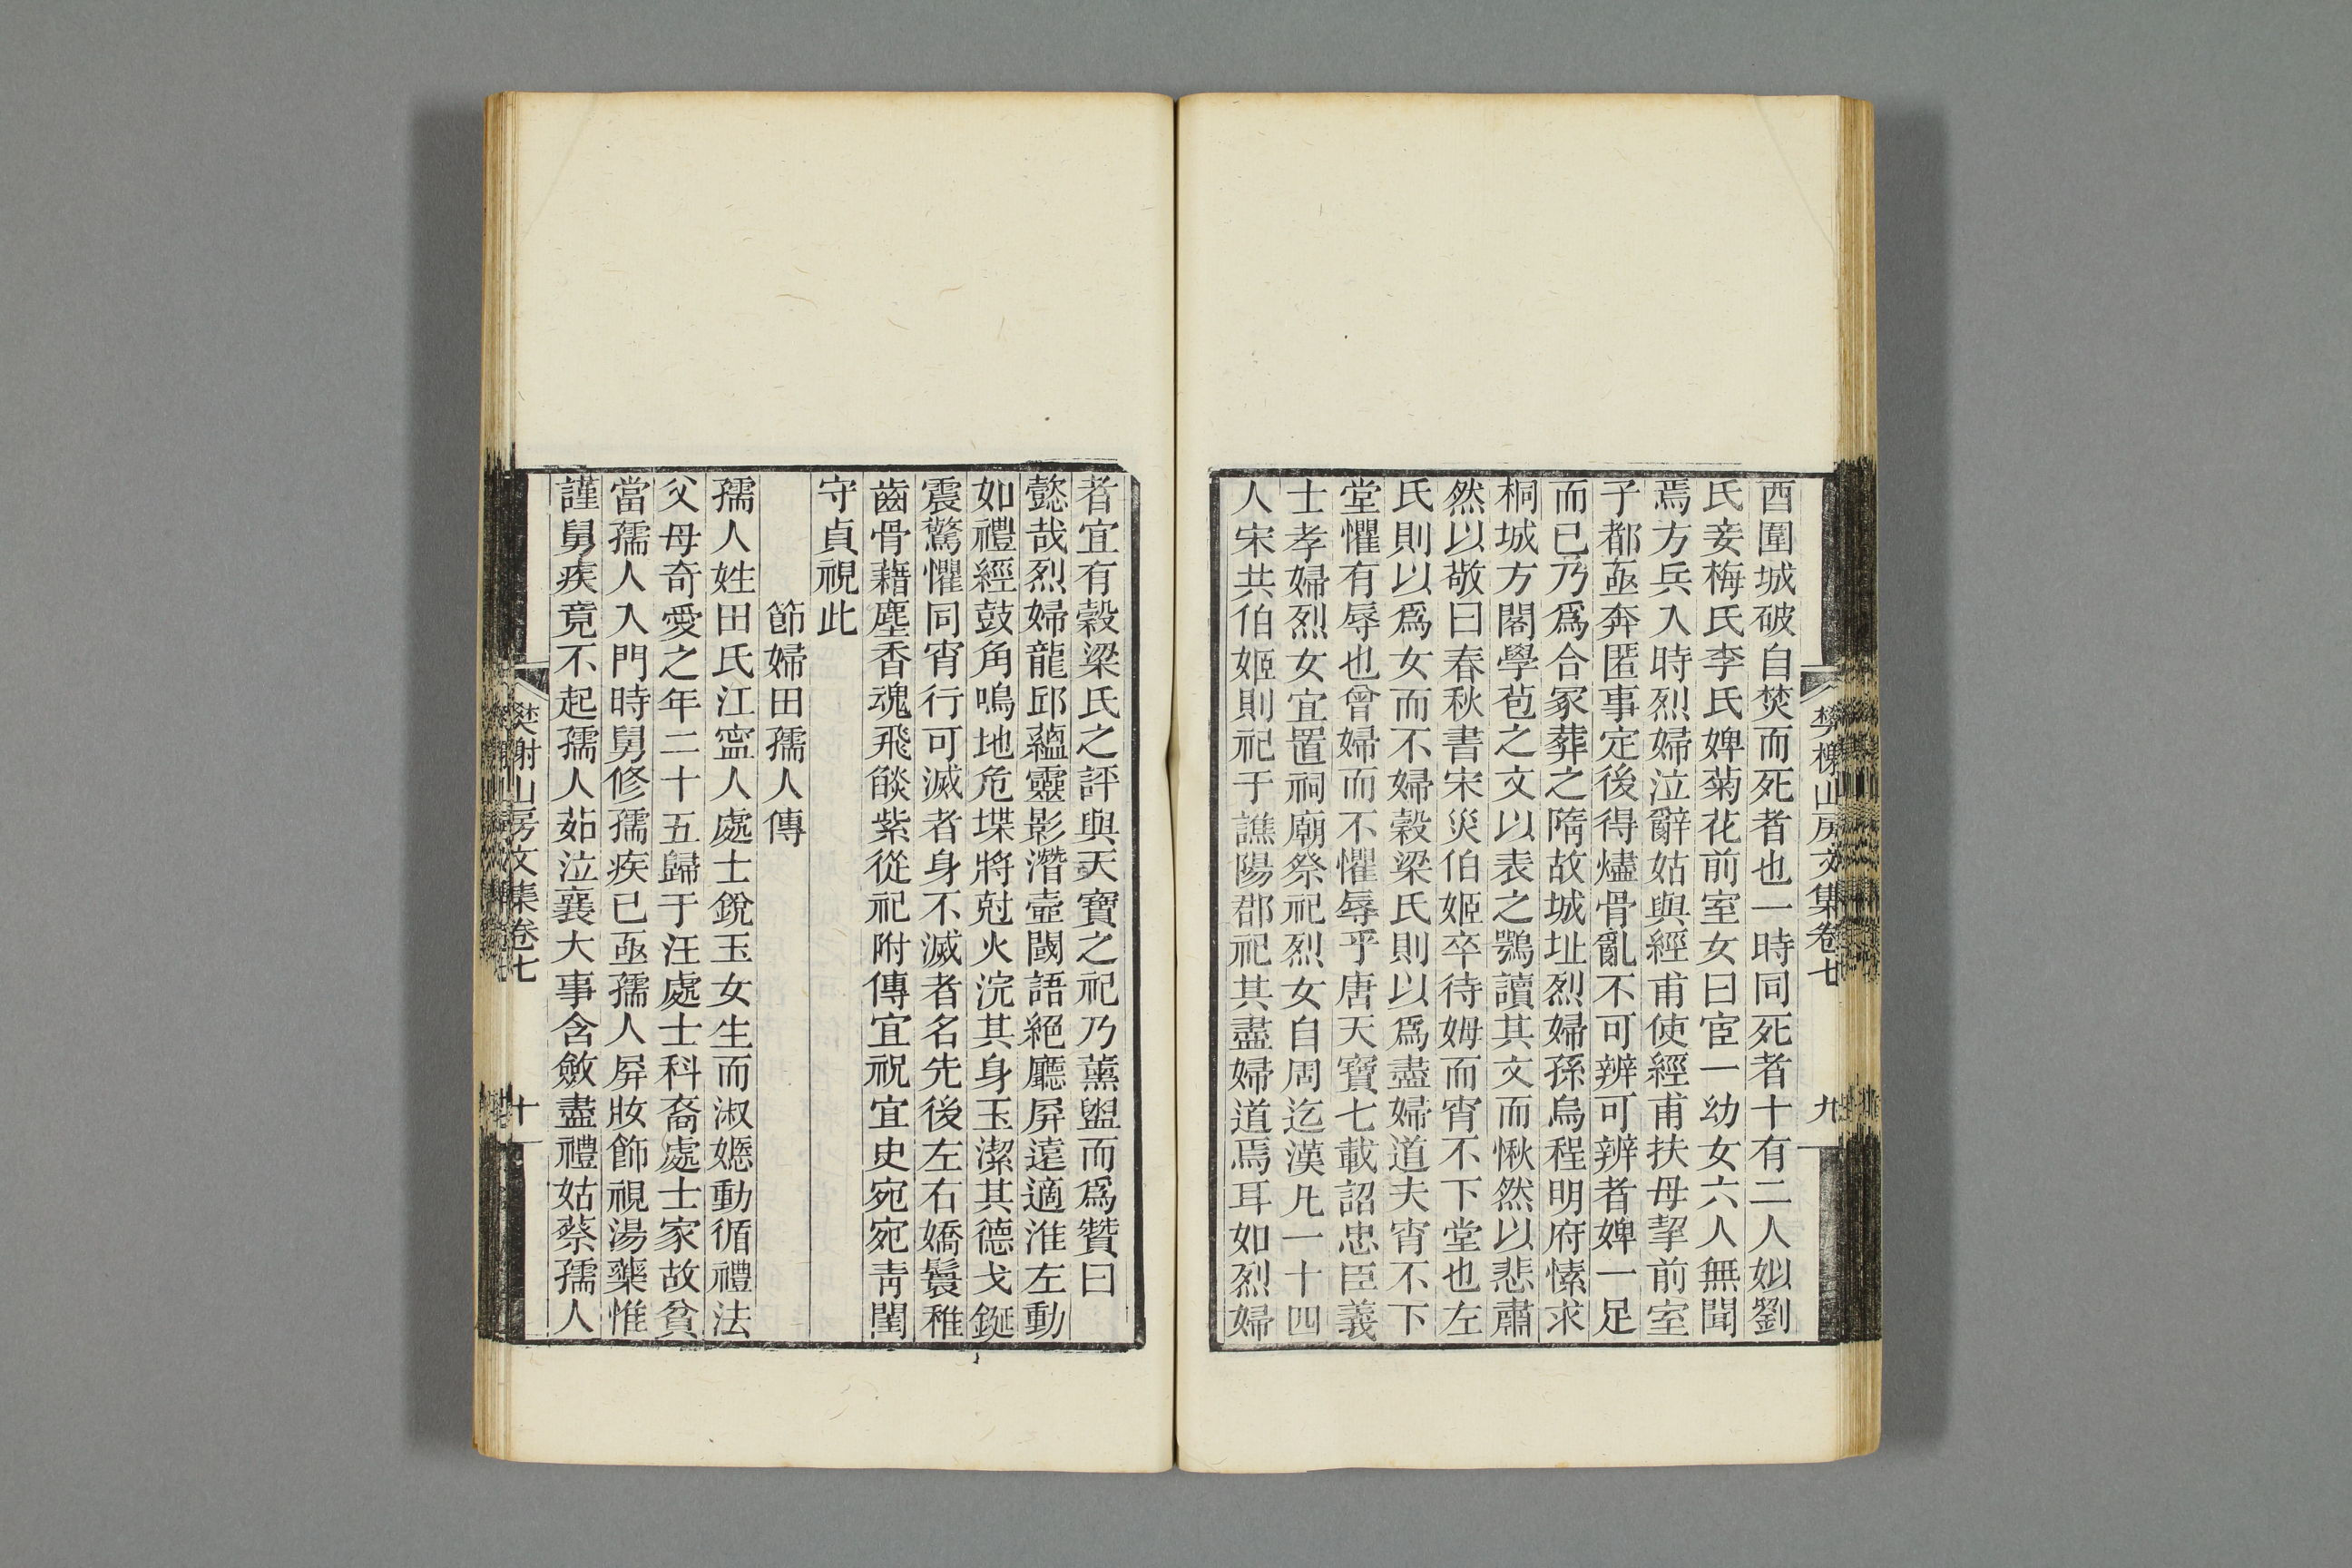 樊榭山房文集卷七
九
酉圍城破自焚而死者也一時同死者十有二人姒劉
氏妾梅氏李氏婢菊花前室女曰宦一幼女六人無聞
焉方兵入時烈婦泣辭姑與經甫使經甫扶母挈前室
子都亟奔匿事定後得燼骨亂不可辨可辨者婢一足
而已乃爲合冢葬之隋故城址烈婦孫烏程明府愫求
桐城方閣學苞之文以表之鶚讀其文而愀然以悲肅
然以敬曰春秋書宋災伯姬卒待姆而宵不下堂也左
氏則以爲女而不婦穀梁氏則以爲盡婦道夫宵不下
堂懼有辱也曾婦而不懼辱乎唐天寶七載詔忠臣義
士孝婦烈女宜置祠廟祭祀烈女自周迄漢凡一十四
人宋共伯姬則祀于譙陽郡祀其盡婦道焉耳如烈婦
者宜有穀梁氏之評與天寶之祀乃薰盥而爲贊曰
懿哉烈婦龍邱蘊靈影潛壼閾語絕廳屏遠適淮左動
如禮經鼓角鳴地危堞將尅火浣其身玉潔其德戈鋋
震驚懼同宵行可滅者身不滅者名先後左右嬌鬟稚
齒骨藉塵香魂飛燄紫從祀附傳宜祝宜史宛宛青閨
守貞視此
節婦田孺人傳
孺人姓田氏江寍人處士銳玉女生而淑嫕動循禮法
父母奇愛之年二十五歸于汪處士科裔處士家故貧
當孺人入門時舅修孺疾已亟孺人屏妝飾視湯藥惟
謹舅疾竟不起孺人茹泣襄大事含斂盡禮姑蔡孺人
樊榭山房文集卷七
十